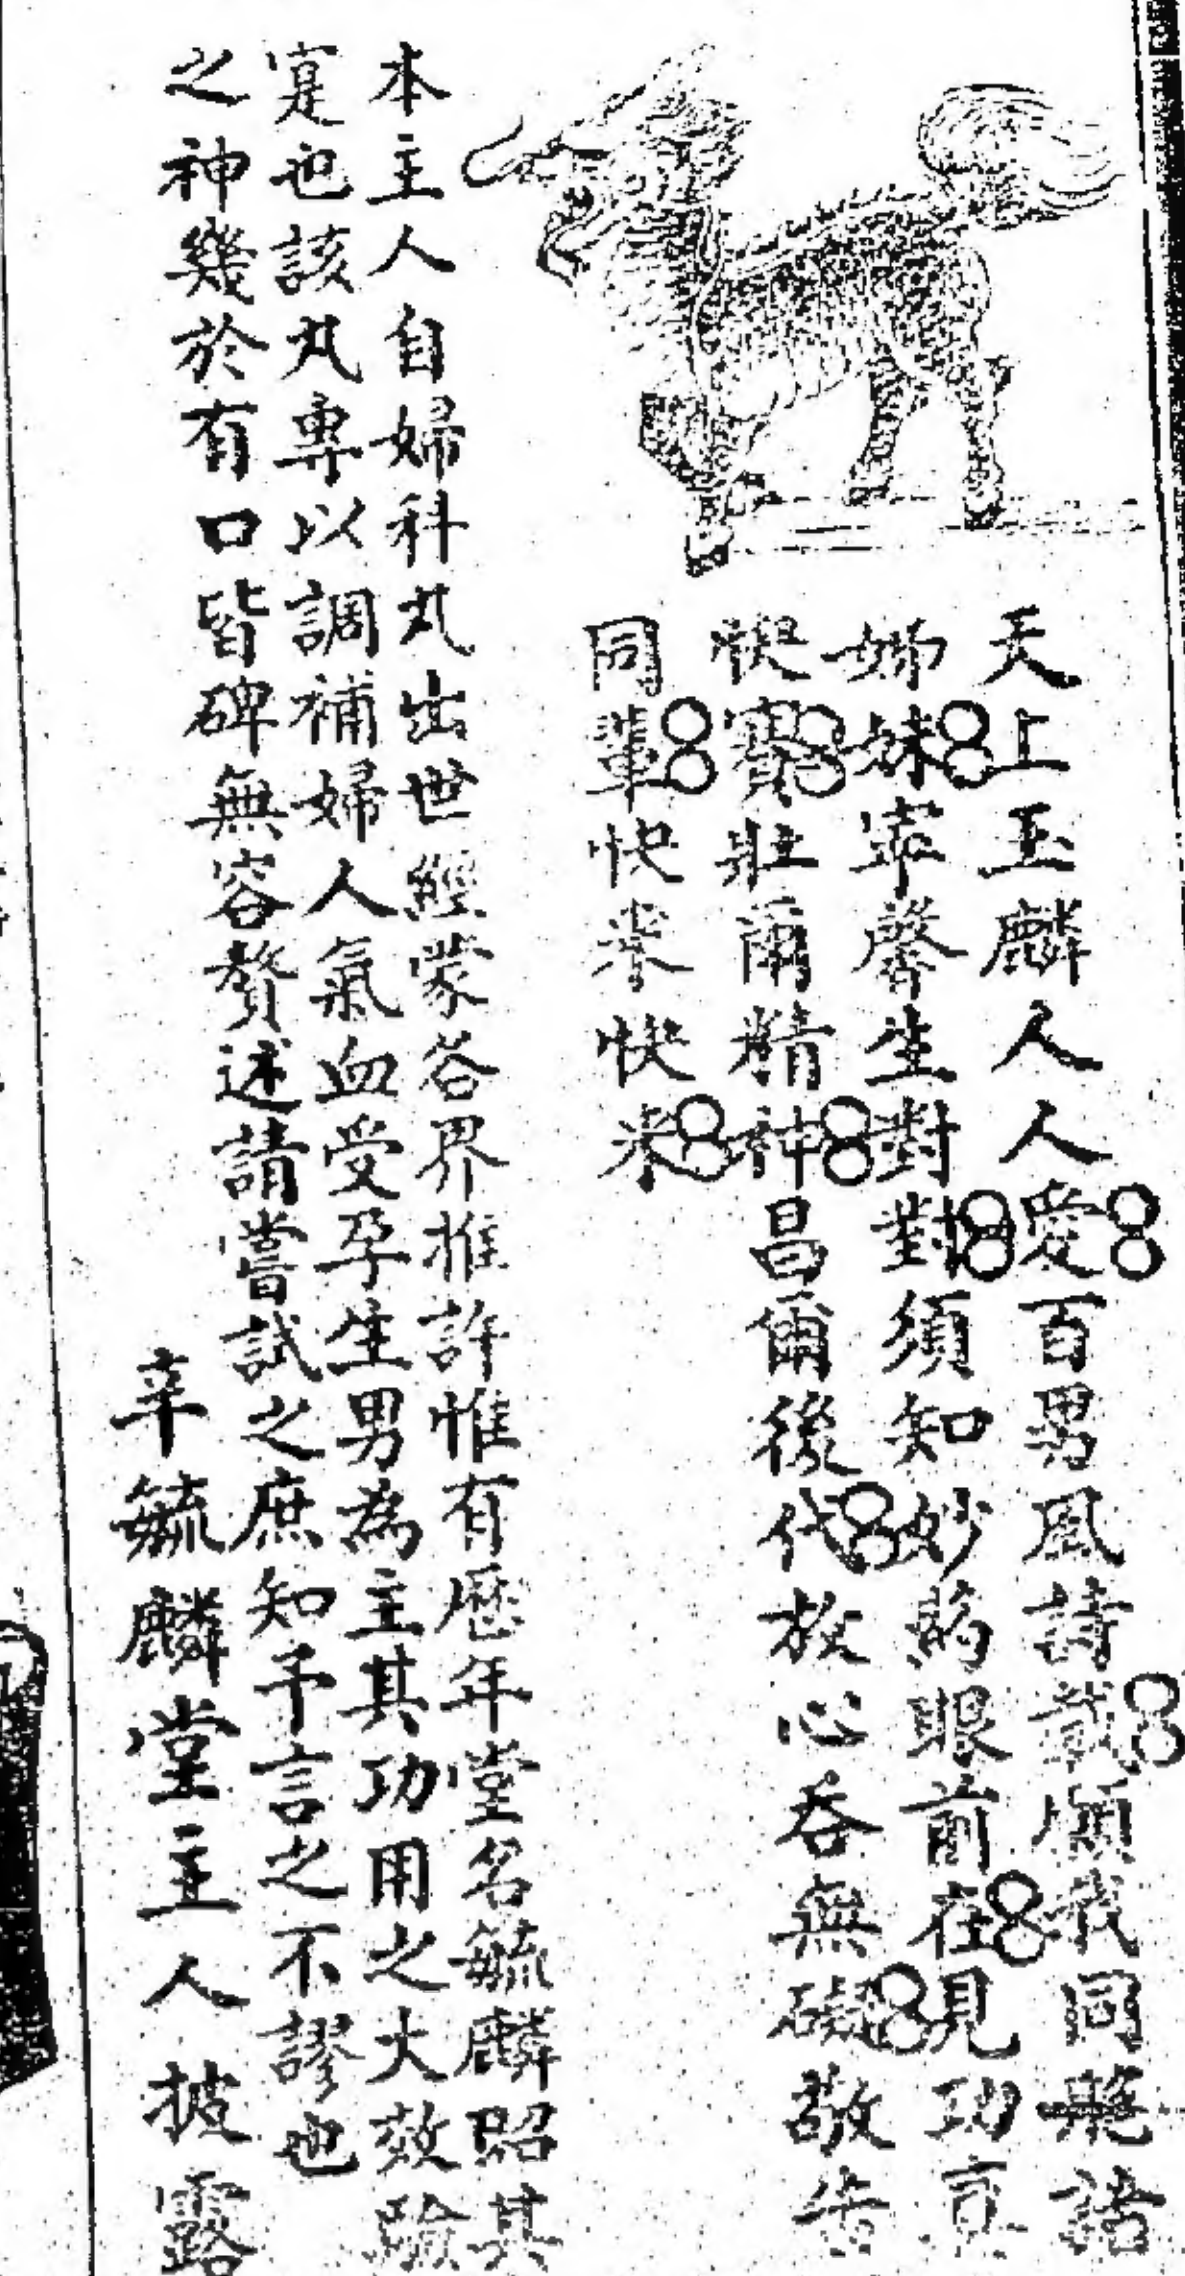 天上玉麟人人愛百男風詩載願我同胞諸
姊妹寧馨生對對須知妙葯眼前在見功真
快寶壯爾精神昌爾後代放心吞無礙敬告
同輩快來快來
本主人自婦科丸出世經蒙各界推許惟有歷年堂名毓麟昭其
寔也該丸專以調補婦人氣血受孕生男為主其功用之大效驗
之神幾於有口皆碑無容贅述請嘗試之庶知予言之不謬也
辛毓麟堂主人披露